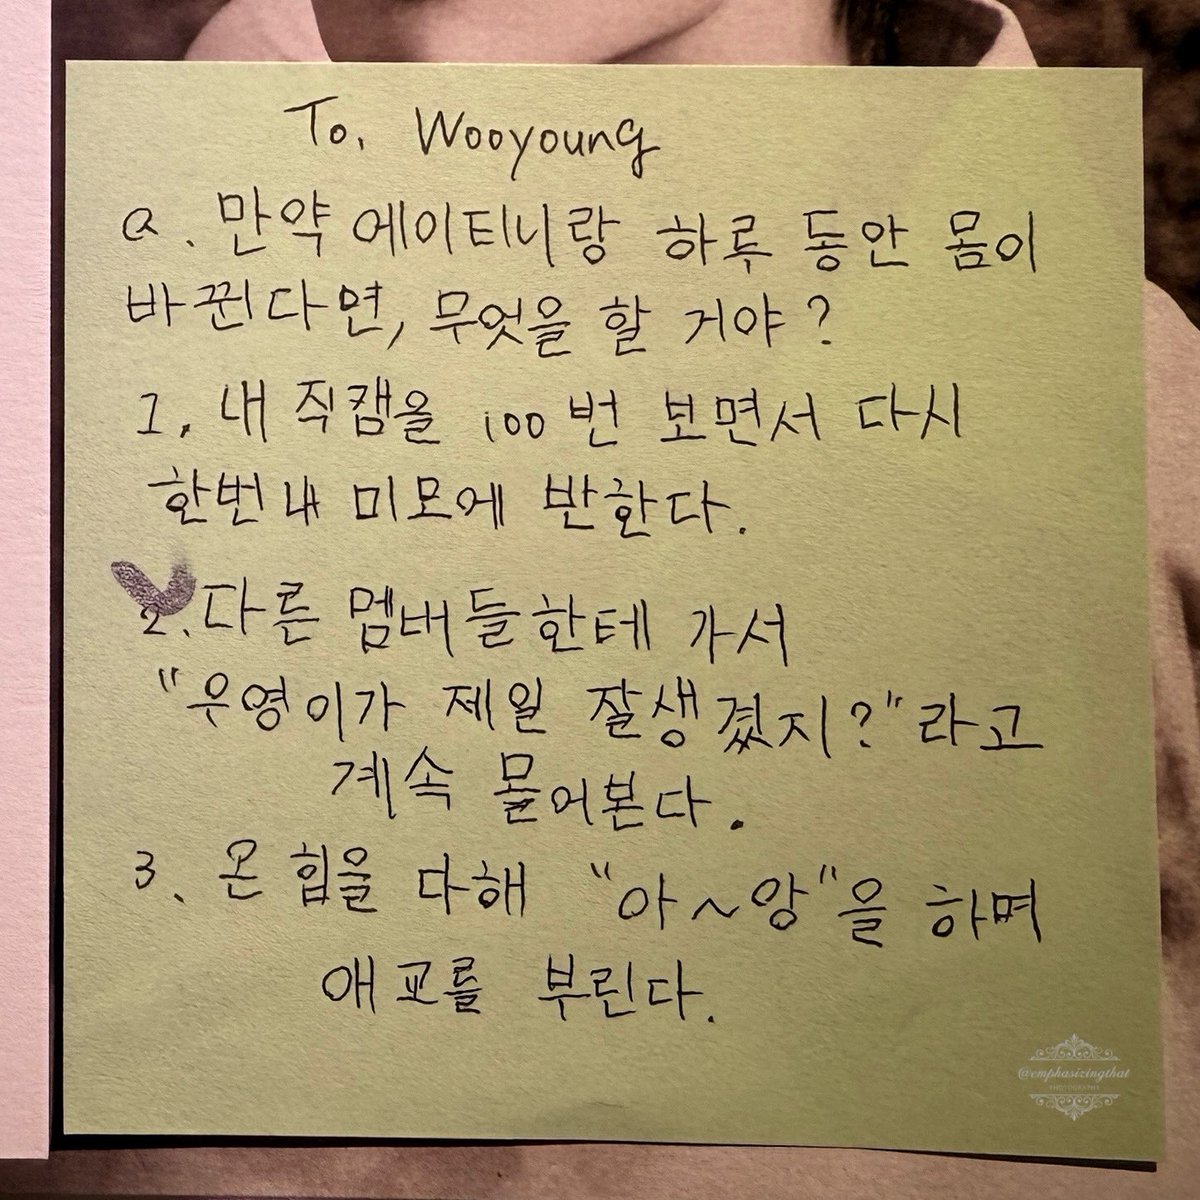 To. Wooyoung
Q. 만약 에이티니랑 하루 동안 몸이
바뀐다면, 무엇을 할 거야?
1. 내 직캠을 100번 보면서 다시
한번 내 미모에 반한다.
2. 다른 멤버들한테 가서
"우영이가 제일 잘생겼지?"라고
계속 물어본다.
3. 온 힘을 다해 "아~앙"을 하며
애교를 부린다.
@emphasizingthat
PHOTOGRAPHY